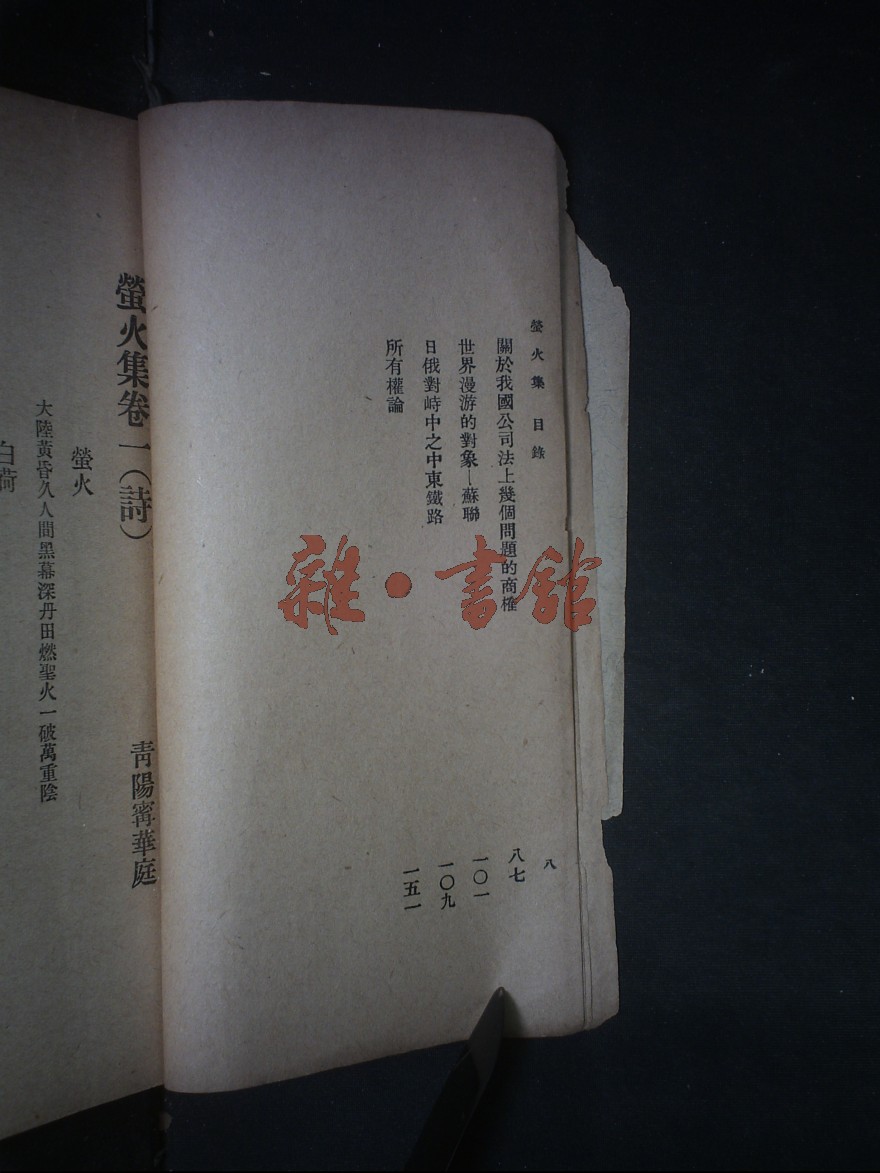 螢火集 目錄
八
關於我國公司法上幾個問題的商榷
八七
世界漫游的對象—蘇聯
一〇一
日俄對峙中之中東鐵路
一〇九
所有權論
一五一
雜·書館
螢火集卷一（詩）
青陽甯華庭
螢火
大陸黃昏久人間黑幕深丹田燃聖火一破萬重陰
白荷